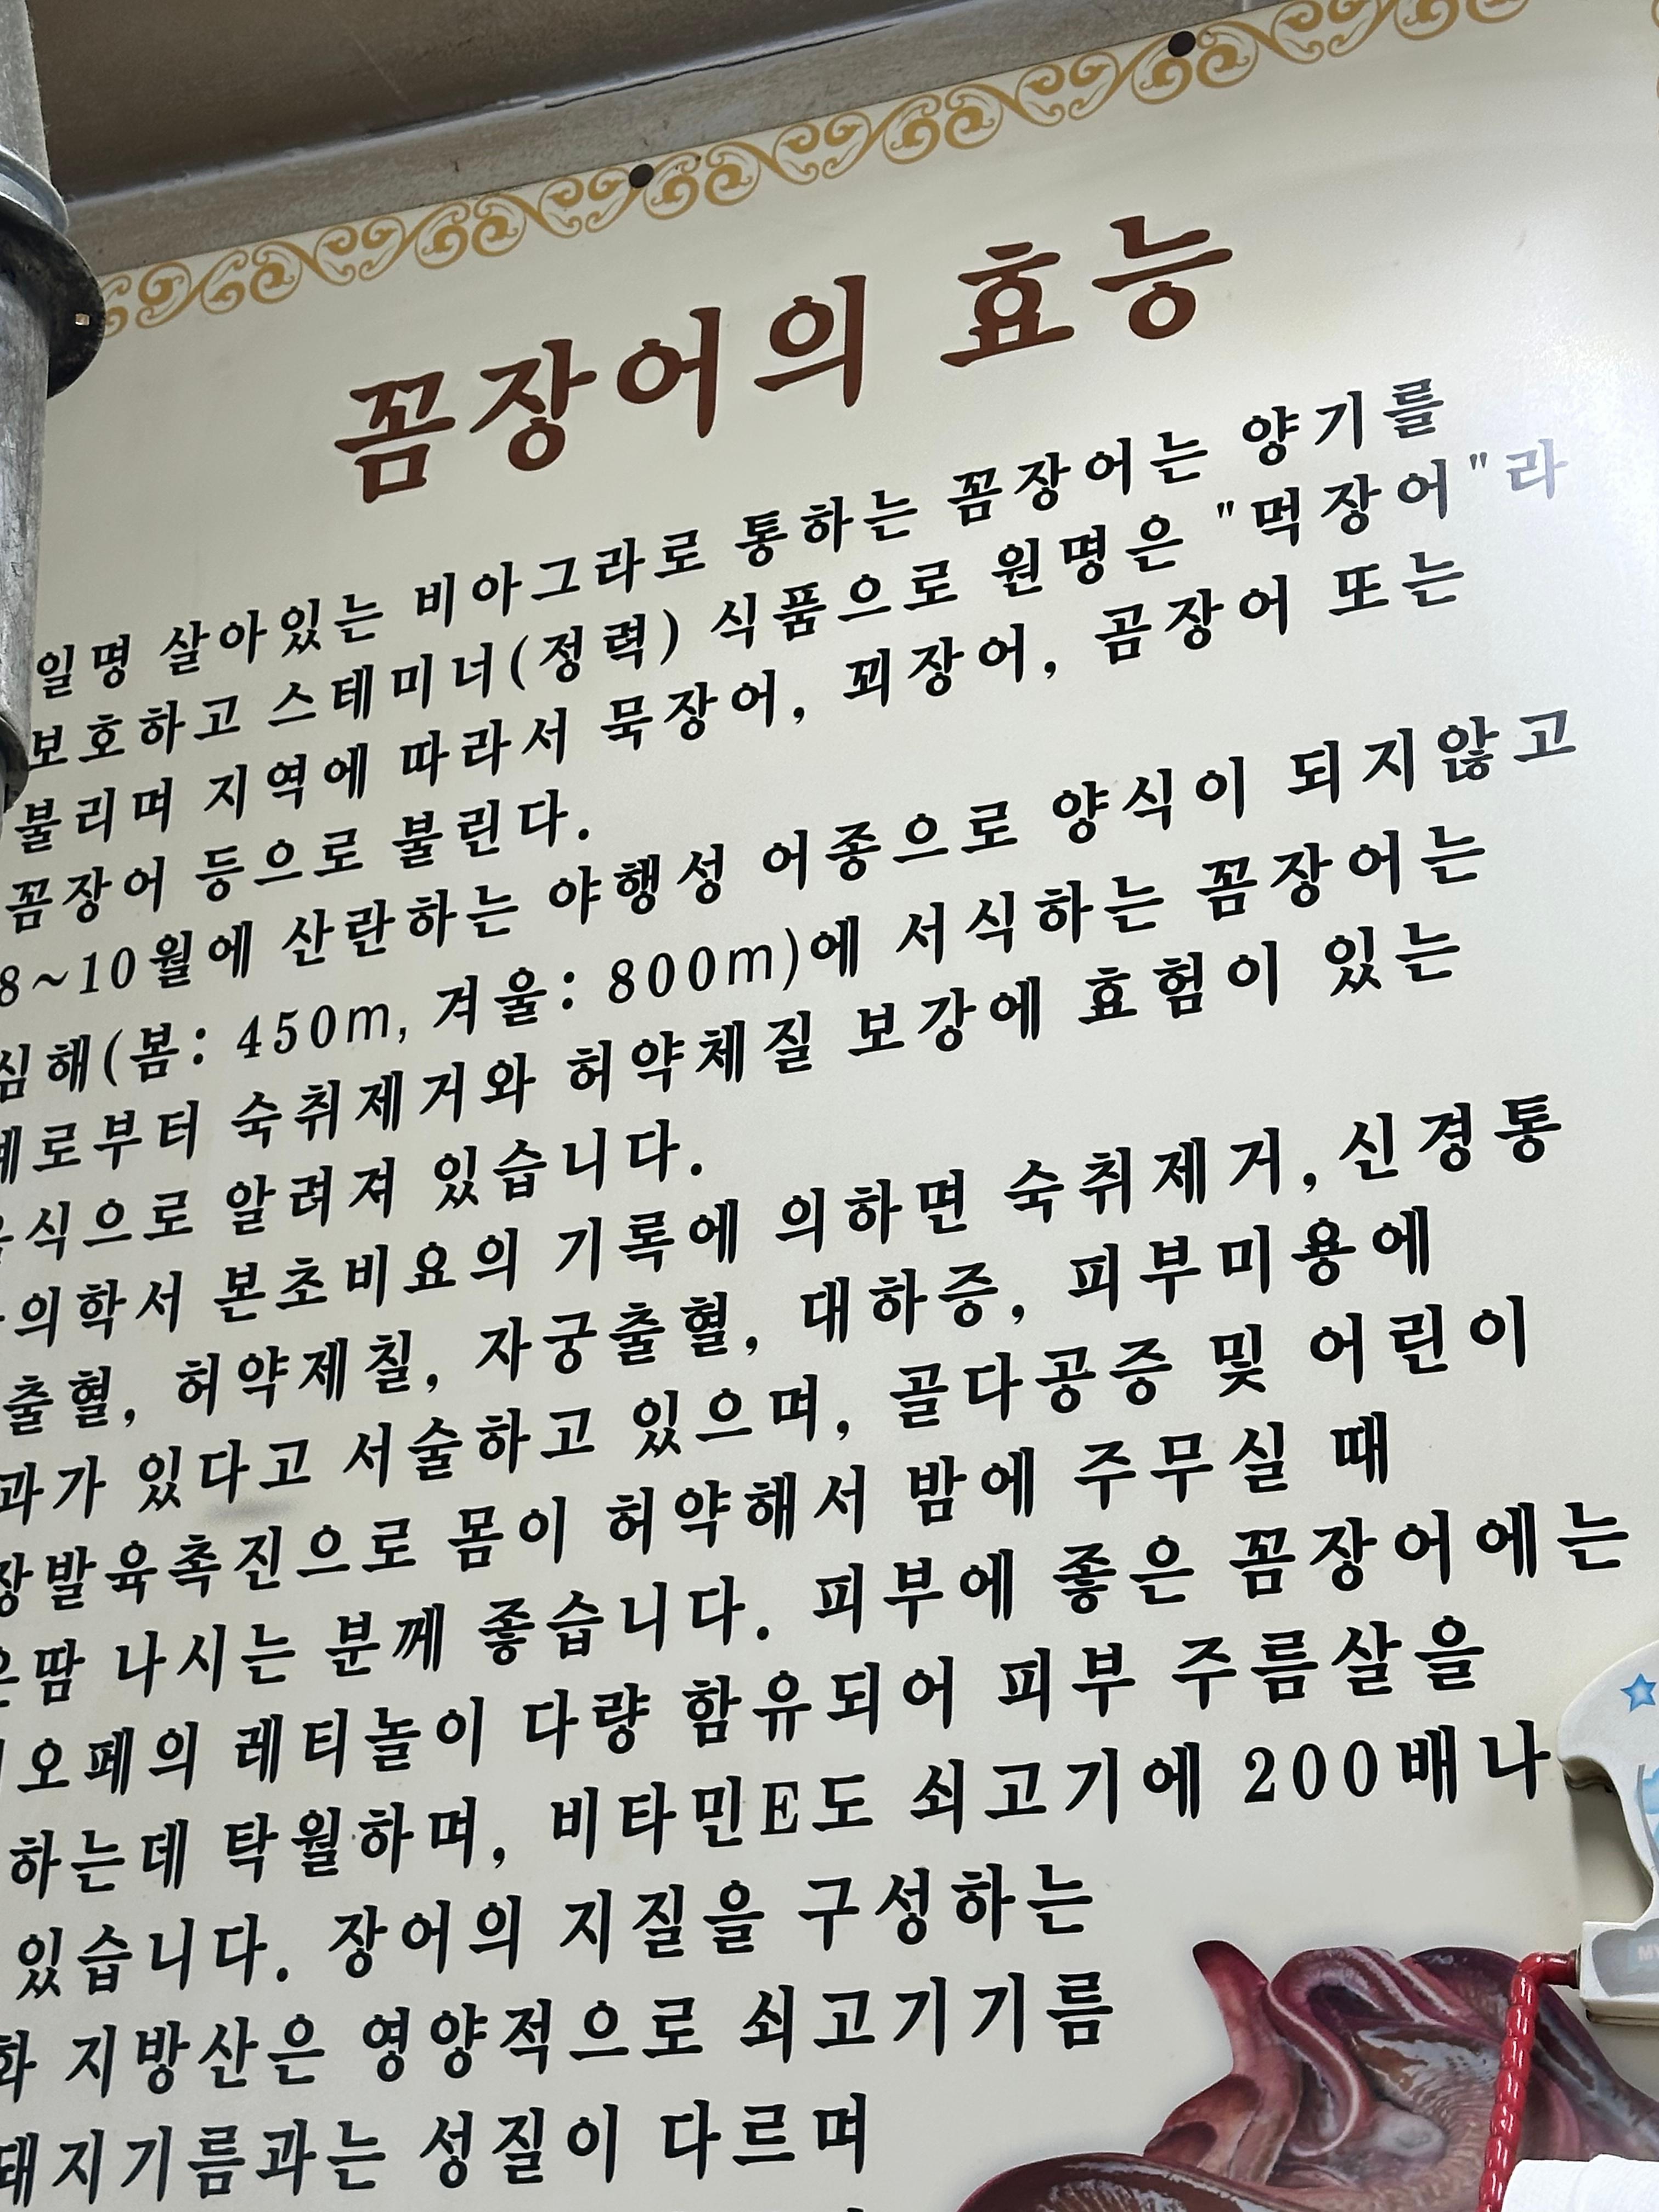 꼼장어의 효능
일명 살아있는 비아그라로 통하는 꼼장어는 양기를
보호하고 스테미너(정력) 식품으로 원명은 "먹장어"라
불리며 지역에 따라서 묵장어, 꾀장어, 곰장어 또는
꼼장어 등으로 불린다.
8~10월에 산란하는 야행성 어종으로 양식이 되지않고
심해(봄: 450m, 겨울: 800m)에 서식하는 꼼장어는
예로부터 숙취제거와 허약체질 보강에 효험이 있는
음식으로 알려져 있습니다.
의학서 본초비요의 기록에 의하면 숙취제거, 신경통
출혈, 허약제칠, 자궁출혈, 대하증, 피부미용에
과가 있다고 서술하고 있으며, 골다공증 및 어린이
장발육촉진으로 몸이 허약해서 밤에 주무실 때
땀 나시는 분께 좋습니다. 피부에 좋은 꼼장어에는
오페의 레티놀이 다량 함유되어 피부 주름살을
하는데 탁월하며, 비타민E도 쇠고기에 200배나
있습니다. 장어의 지질을 구성하는
화 지방산은 영양적으로 쇠고기기름
돼지기름과는 성질이 다르며